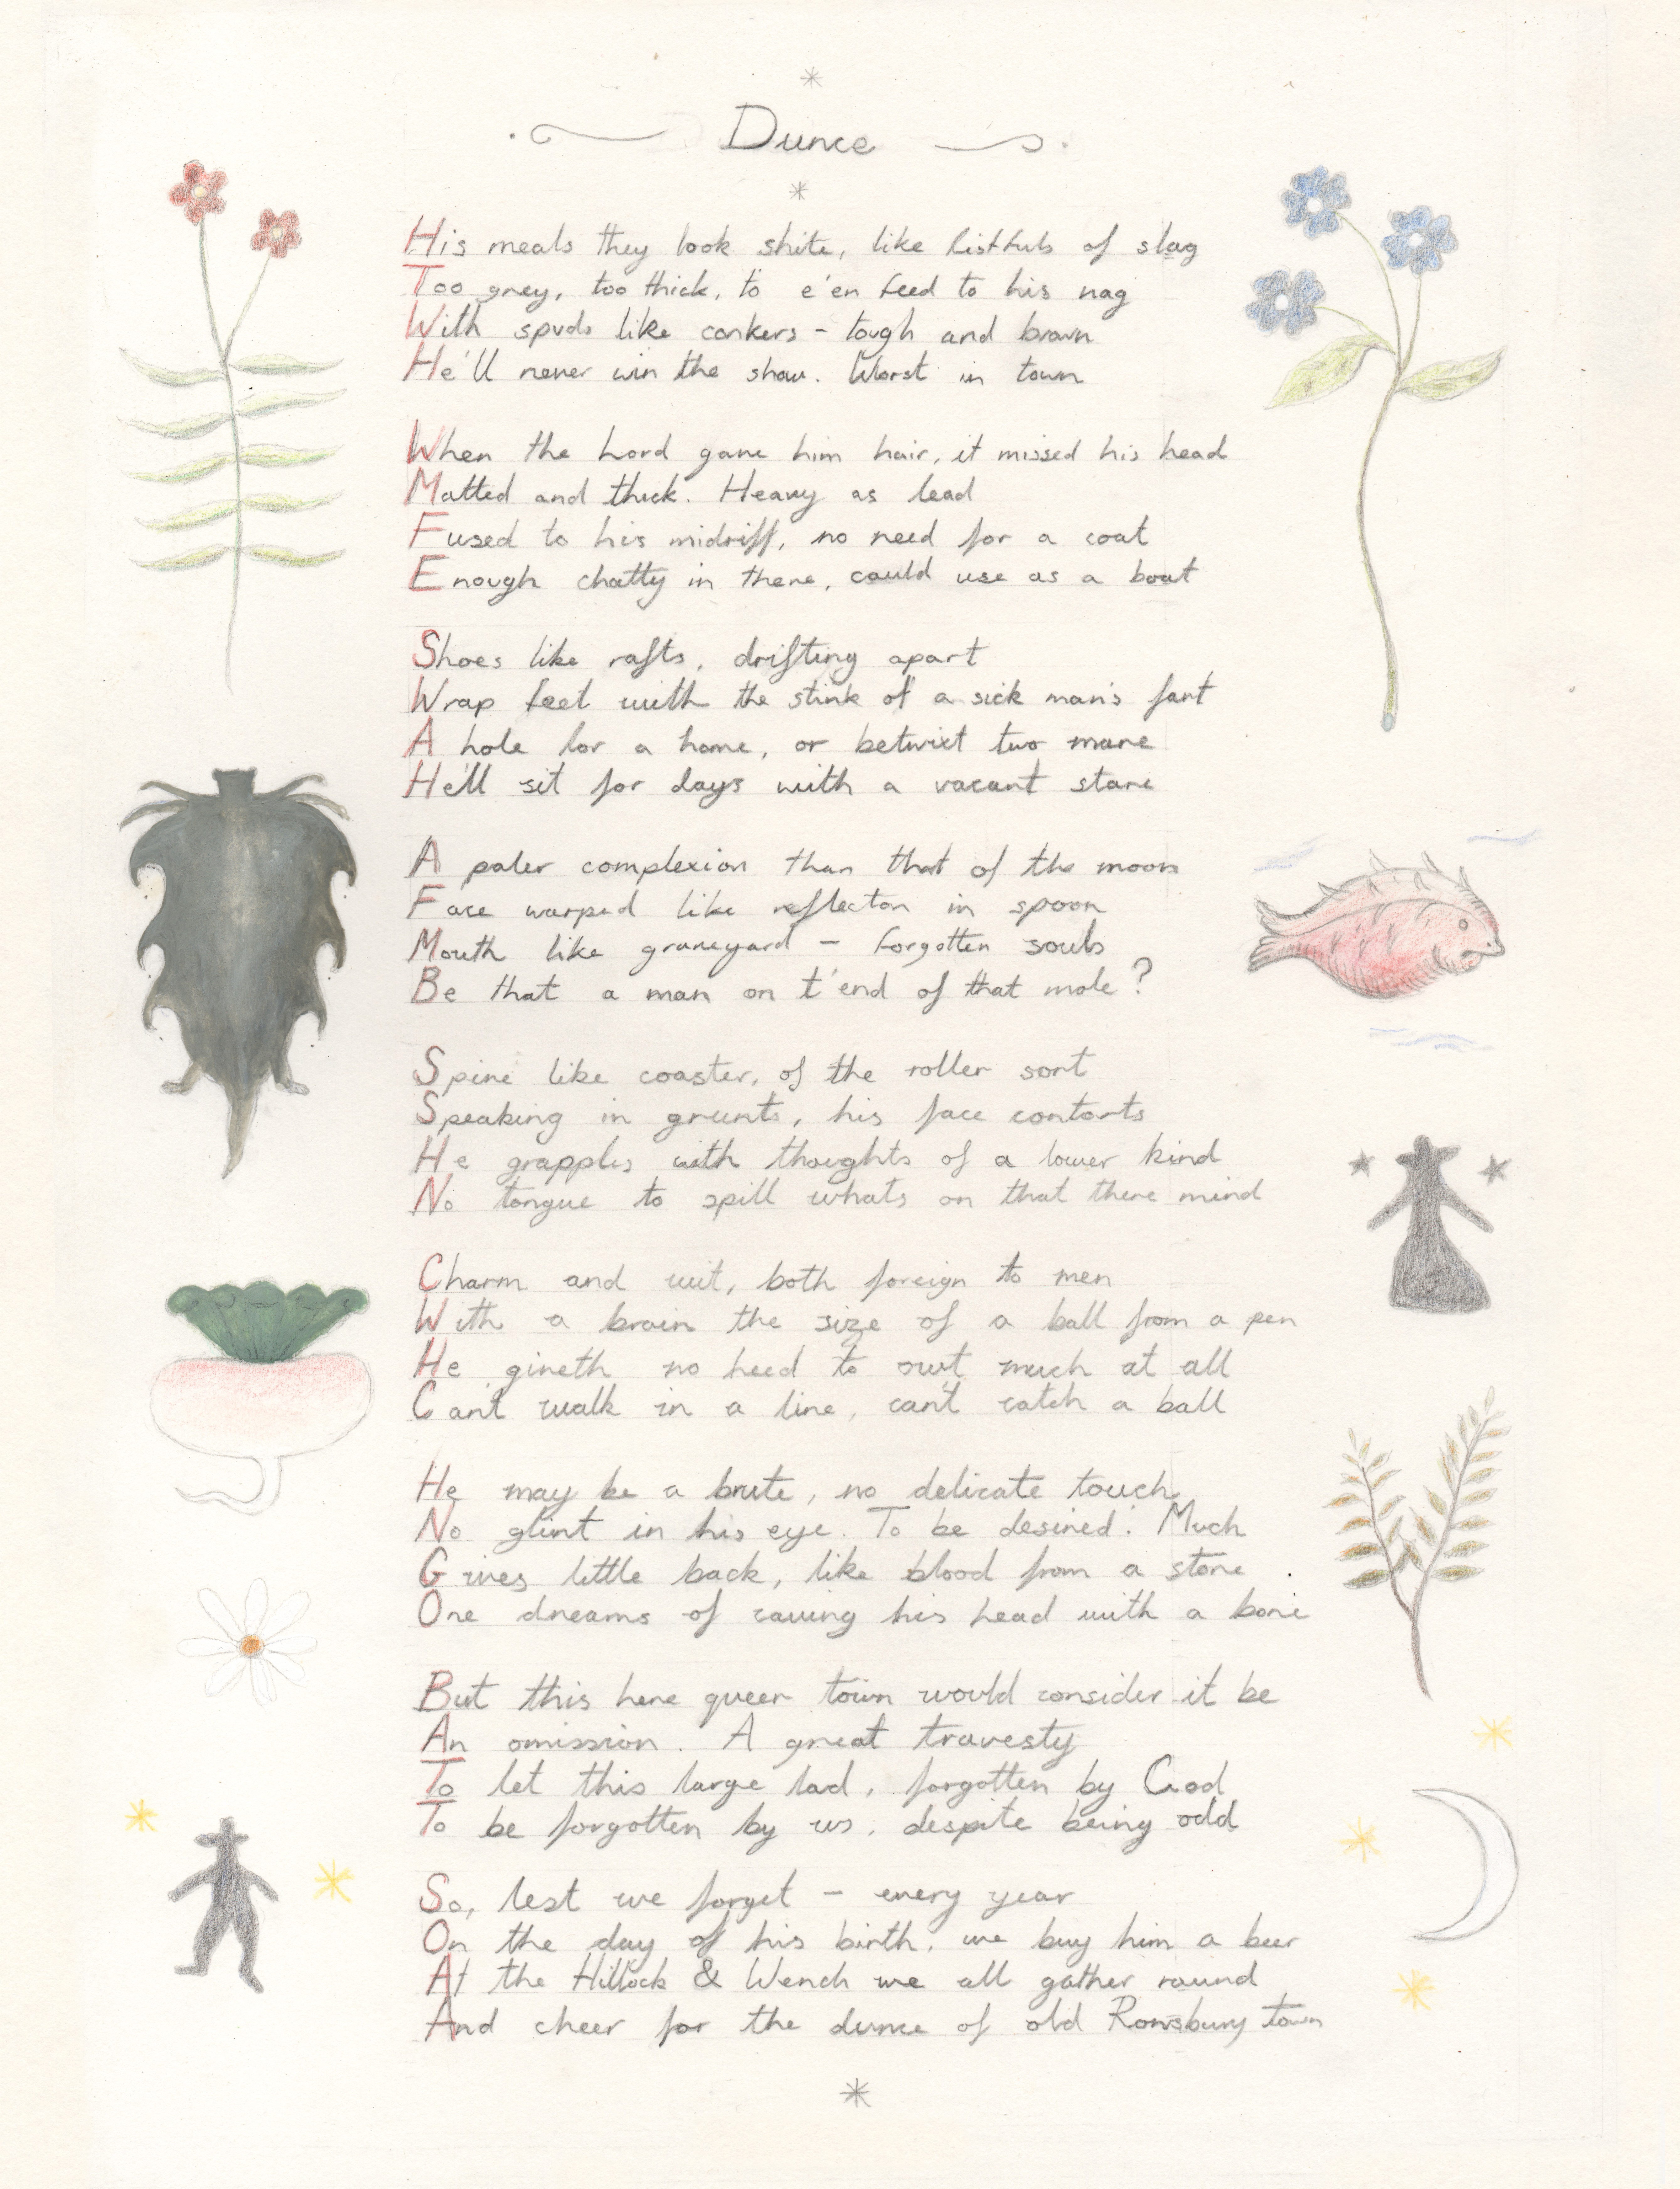 Dunce
His meals they look shite, like fistfuls of slag
Too grey, too thick, to e'en feed to his nag
With spuds like conkers - tough and brown
He'll never win the show. Worst in town
When the Lord gave him hair, it missed his head
Matted and thick. Heavy as lead
Fused to his midriff, no need for a coat
Enough chatty in there, could use as a boat
Shoes like rafts, drifting apart
Wrap feet with the stink of a sick man's fart
A hole for a home, or betwixt two mare
He'll sit for days with a vacant stare
A paler complexion than that of the moon
Face warped like reflecton in spoon
Mouth like graveyard - forgotten souls
Be that a man on t'end of that mole?
Spine like coaster, of the roller sort
Speaking in grunts, his face contorts
He grapples with thoughts of a lower kind
No tongue to spill whats on that there mind
Charm and wit, both foreign to men
With a brain the size of a ball from a pen
He giveth no heed to owt much at all
Can't walk in a line, can't catch a ball
He may be a brute, no delicate touch
No glint in his eye. To be desired. Much
Gives little back, like blood from a stone
One dreams of caving his head with a bone
But this here queer town would consider it be
An omission. A great travesty
To let this large lad, forgotten by God
To be forgotten by us, despite being odd
So, lest we forget - every year
On the day of his birth, we buy him a beer
At the Hillock & Wench we all gather round
And cheer for the dunce of old Rowsbury town